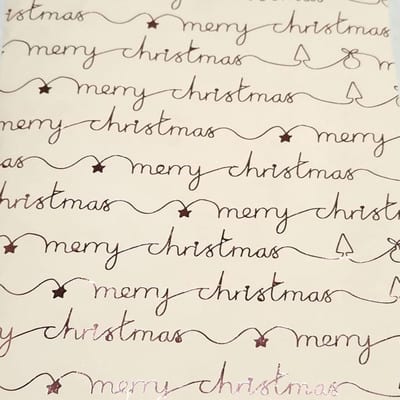 istmas merry christmas
merry christmas
merry christmas
merry christmas merry
as merry christmas
christmas merry christm
merry christmas
merry christmas
y christmas merry
merry christmas